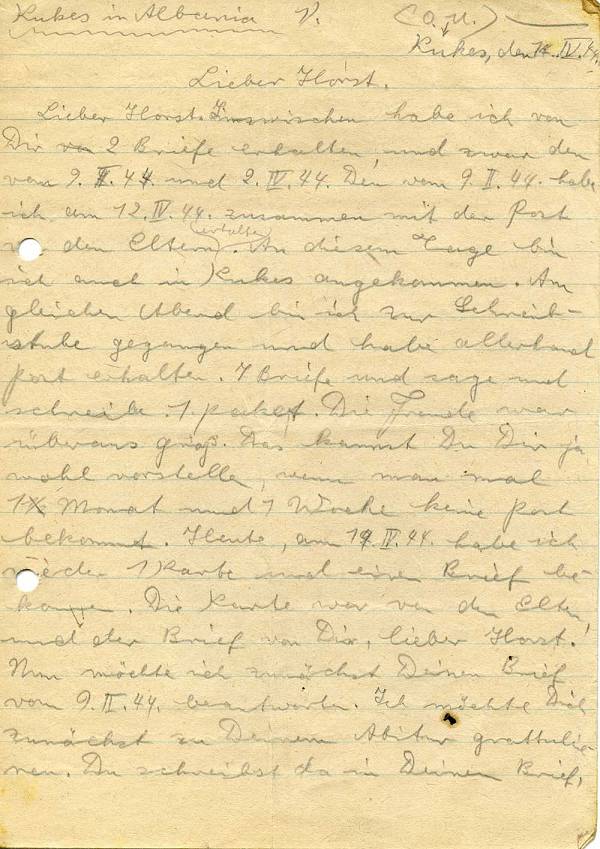 Kukes in Albania V. (O.U.)
Kukes, den 14. IV. 44.
Lieber Horst.
Lieber Horst. Inzwischen habe ich von
Dir 2 Briefe erhalten, und zwar den
vom 9. II. 44. und 2. IV. 44. Den vom 9. II. 44. habe
ich am 12. IV. 44. zusammen mit der Post
den Eltern erhalten. An diesem Tage bin
ich auch in Kukes angekommen. Am
gleichen Abend bin ich zur Schreib-
stube gegangen und habe allerhand
Post erhalten. 7 Briefe und sage und
schreibe 1 paket. Die Freude war
überaus groß. Das kannst Du Dir ja
wohl vorstelle, wenn man mal
1 Monat und 1 Woche keine Post
bekommt. Heute, am IV. 44. habe ich
wieder 1 Karte und einen Brief be-
komme. Die Karte war von den Eltern
und der Brief von Dir, lieber Horst!
Nun möchte ich zunächst Deinen Brief
vom 9. II. 44. beantworten. Ich möchte Dich
zunächst zu Deinem Abitur grattulie-
ren. Du schreibst da in Deinen Brief,